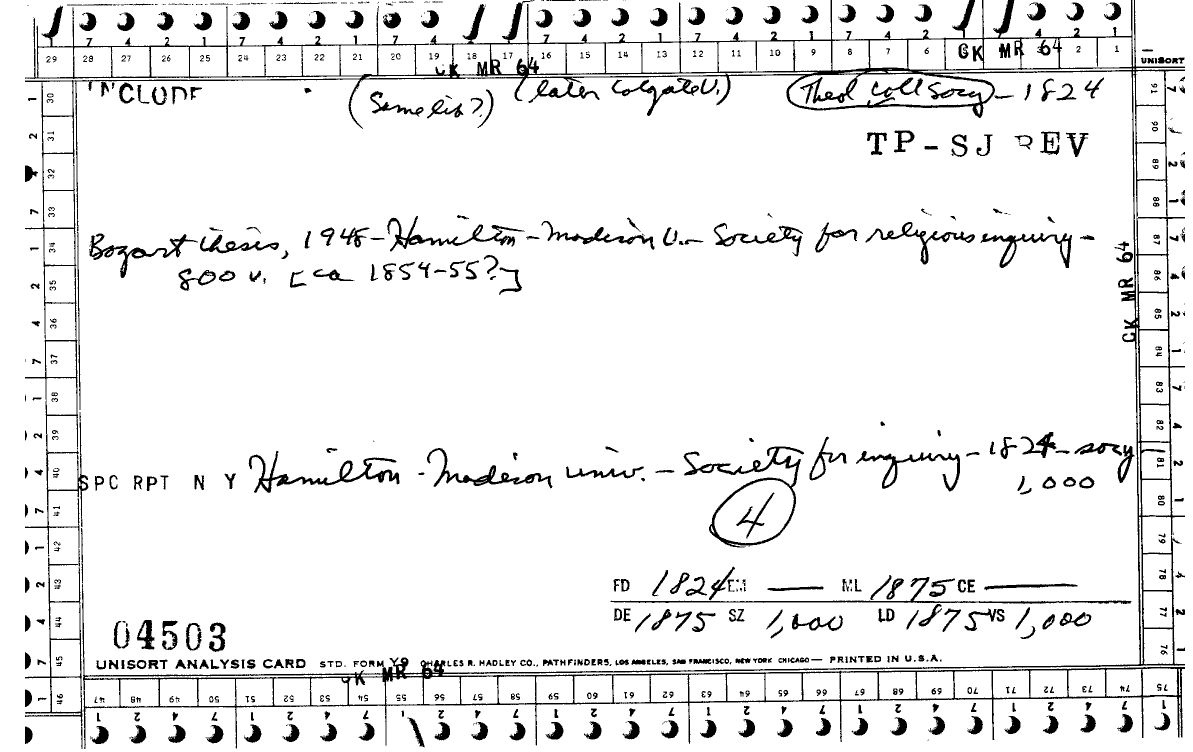 7 4 2 1 7 4 2 1 7 4 2 1 7 4 2 1 7 4 2 1
29 28 27 26 25 24 23 22 21 20 19 18 17 16 15 14 13 12 11 10 9 8 7 6 2 1
CK MR 64
CK MR 64
UNISORT
INCLUDE (Same lib?) (later Colgate U.) Theol coll socy - 1824
TP-SJ REV
Bogart thesis, 1948 - Hamilton - Madison U. - Society for religious inquiry -
800 v. [ca 1854-55?]
CK MR 64
SPC RPT N Y Hamilton - Madison univ. - Society for inquiry - 1824 - socy
1,000
4
FD 1824 EM — ML 1875 CE —
DE 1875 SZ 1,000 LD 1875 VS 1,000
04503
UNISORT ANALYSIS CARD STD. FORM Y9 CHARLES R. HADLEY CO., PATHFINDERS, LOS ANGELES, SAN FRANCISCO, NEW YORK CHICAGO — PRINTED IN U.S.A.
CK MR 64
30 31 32 33 34 35 36 37 38 39 40 41 42 43 44 45 46
91 90 89 88 87 86 85 84 83 82 81 80 79 78 77 76
47 48 49 50 51 52 53 54 55 56 57 58 59 60 61 62 63 64 65 66 67 68 69 70 71 72 73 74 75